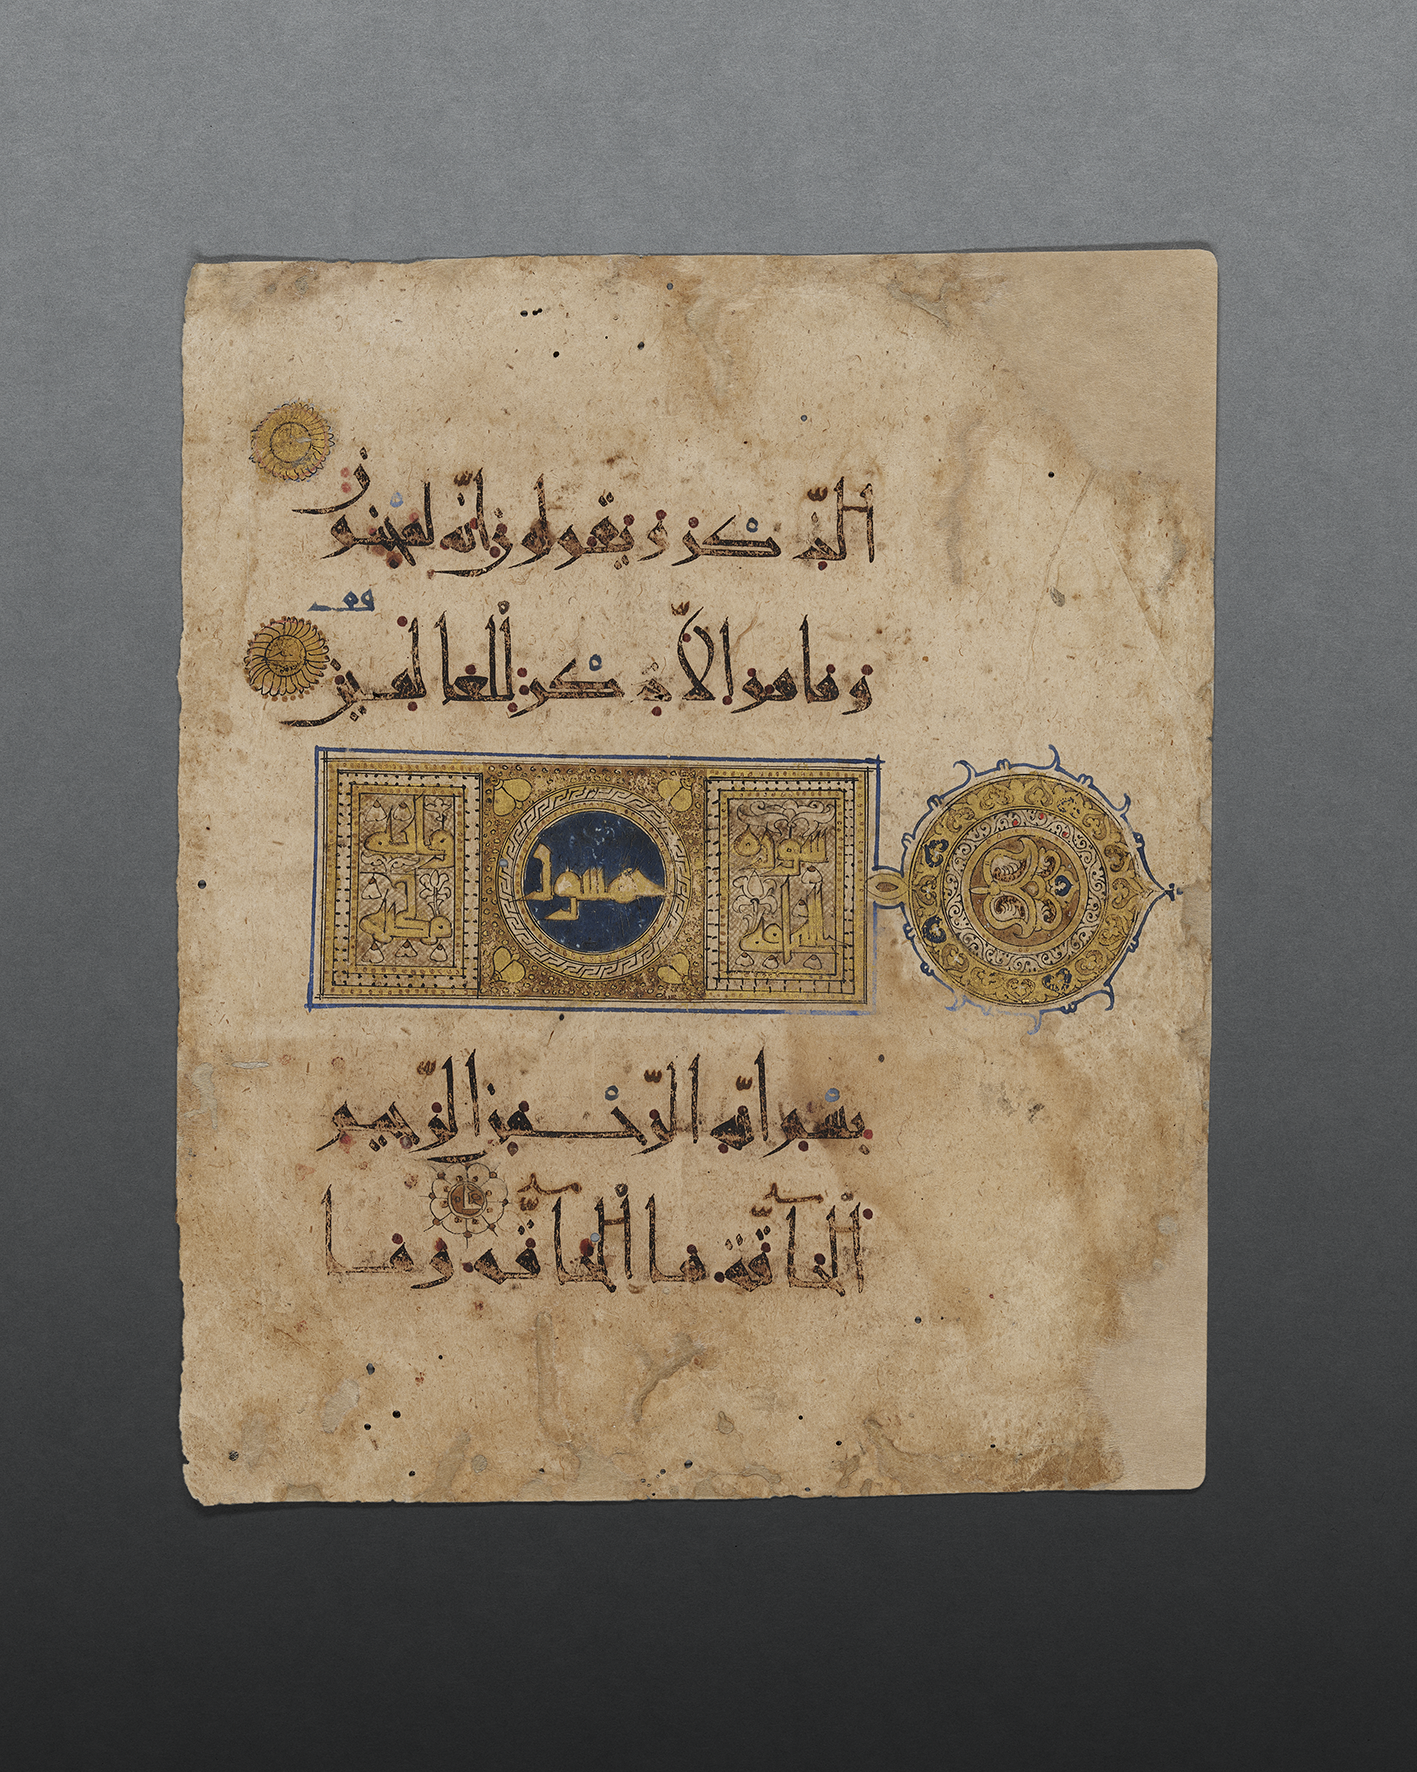 الذكر ويقولون انه لمجنون
وما هو الا ذكر للعالمين
سورة
خمسون
بسم الله الرحمن الرحيم
الحاقة ما الحاقة وما